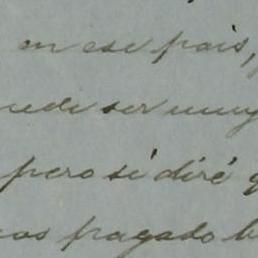 en ese pais,
uede ser muy
pero sí diré q
cos pagado b